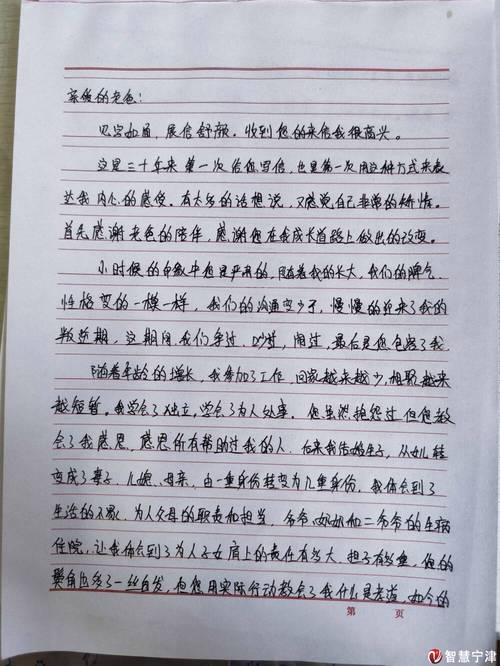 亲爱的老爸:
见字如面,展信舒颜。收到您的来信我很高兴。
这是三十年来第一次给您写信,也是第一次用这种方式来表
达我内心的感受。有太多的话想说,又感觉自己非常的矫情。
首先感谢老爸的陪伴,感谢您在我成长道路上做出的改变。
小时候的印象中您是严肃的,随着我的长大,我们的脾气、
性格变的一模一样,我们的沟通变少了,慢慢的迎来了我的
叛逆期,这期间我们争过、吵过,闹过,最后是您包容了我
随着年龄的增长,我参加了工作,回家越来越少,相聚越来
越短暂。我学会了独立,学会了为人处事。您虽然抱怨过但您教
会了我感恩,感恩所有帮助过我的人。后来我结婚生子,从女儿转
变成了妻子、儿媳、母亲,由一重身份转变为几重身份,我体会到了
生活的不易,为人父母的职责和担当。爷爷、奶奶和二爷爷的生病
住院,让我体会到了为人子女肩上的责任有多大、担子有多重,您的
鬓角也多了一丝白发,但您用实际行动教会了我什么是孝道,如今的
第 页
智慧宁津